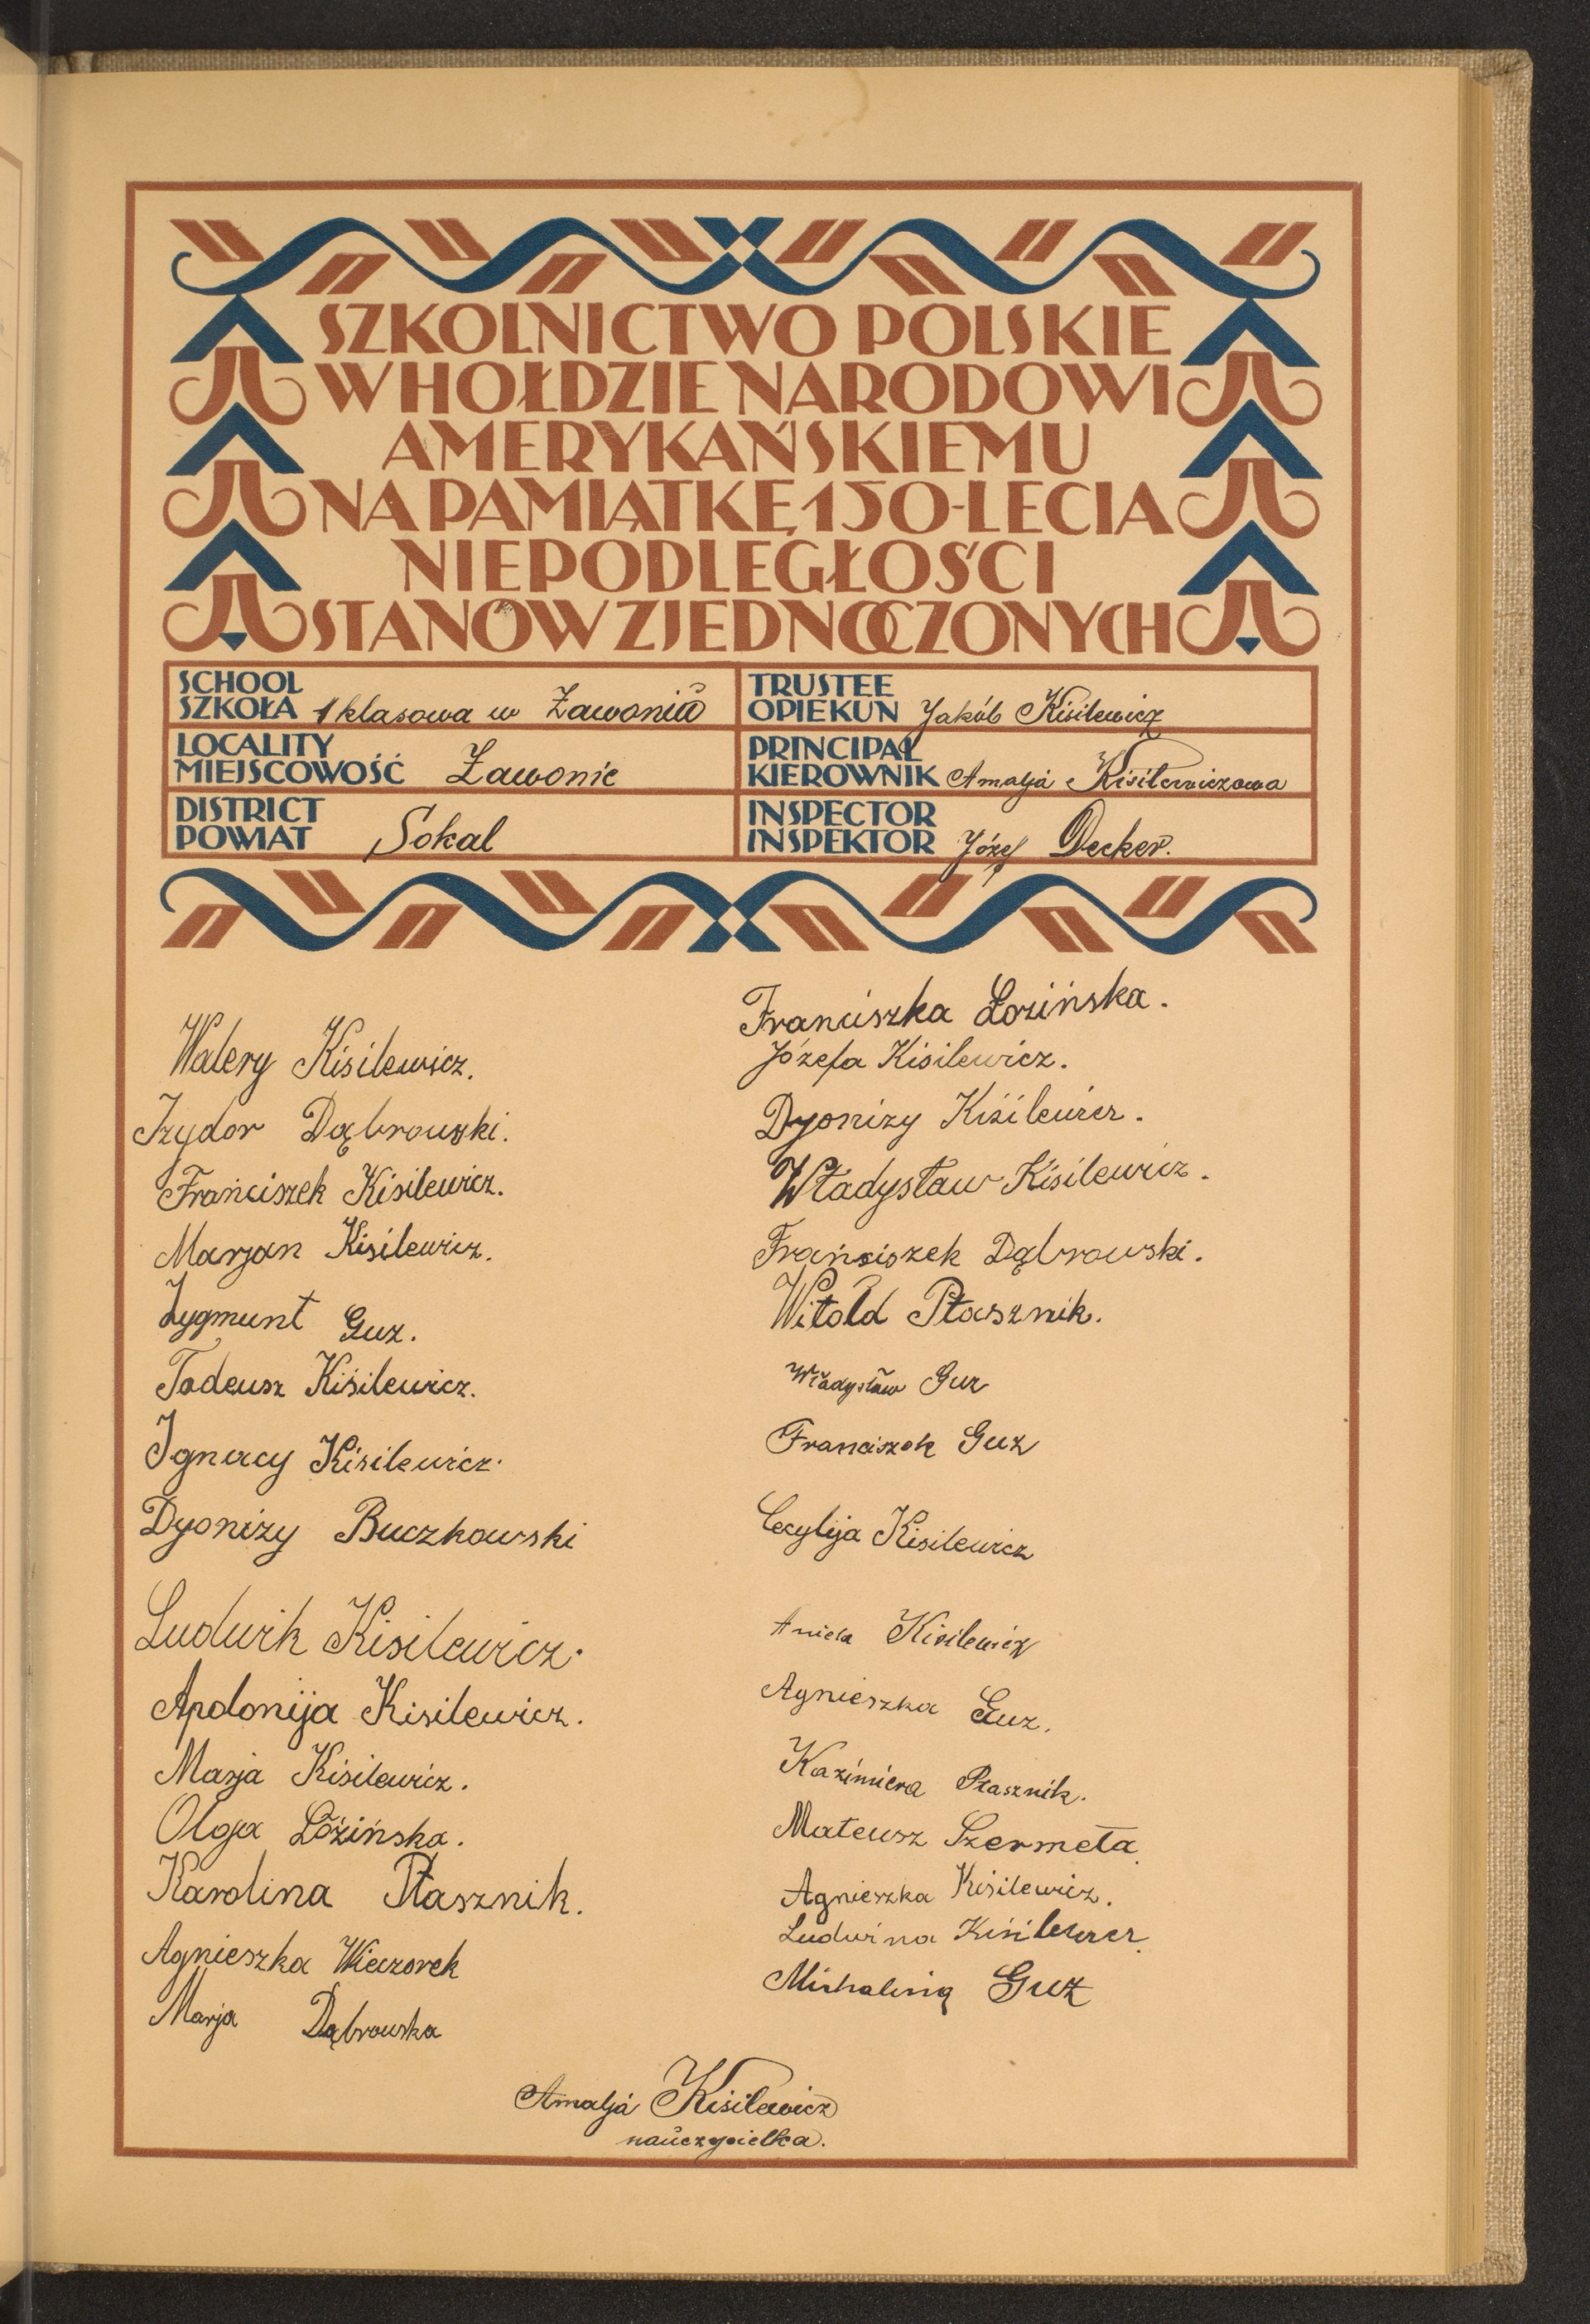 SZKOLNICTWO POLSKIE
W HOŁDZIE NARODOWI
AMERYKAŃSKIEMU
NA PAMIĄTKĘ 150-LECIA
NIEPODLEGŁOŚCI
STANÓW ZJEDNOCZONYCH
SCHOOL
SZKOŁA 1 klasowa w Zawoniu
LOCALITY
MIEJSCOWOŚĆ Zawonie
DISTRICT
POWIAT Sokal
TRUSTEE
OPIEKUN Jakób Kisilewicz
PRINCIPAL
KIEROWNIK Amalja Kisilewiczowa
INSPECTOR
INSPEKTOR Józef Decker.
Walery Kisilewicz.
Izydor Dąbrowski.
Franciszek Kisilewicz.
Marjan Kisilewicz.
Zygmunt Guz.
Tadeusz Kisilewicz.
Ignacy Kisilewicz.
Dyonizy Buczkowski
Ludwik Kisilewicz.
Apolonija Kisilewicz.
Marja Kisilewicz.
Olga Łozińska.
Karolina Ptasznik.
Agnieszka Wieczorek
Marja Dąbrowska
Franciszka Łozińska.
Józefa Kisilewicz.
Dyonizy Kisilewicz.
Władysław Kisilewicz.
Franciszek Dąbrowski.
Witold Ptasznik.
Władysław Guz
Franciszek Guz
Cecylija Kisilewicz
Aniela Kisilewicz
Agnieszka Guz.
Kazimiera Ptasznik.
Mateusz Szermeta.
Agnieszka Kisilewicz.
Ludwina Kisilewicz.
Michalina Guz
Amalja Kisilewicz
nauczycielka.